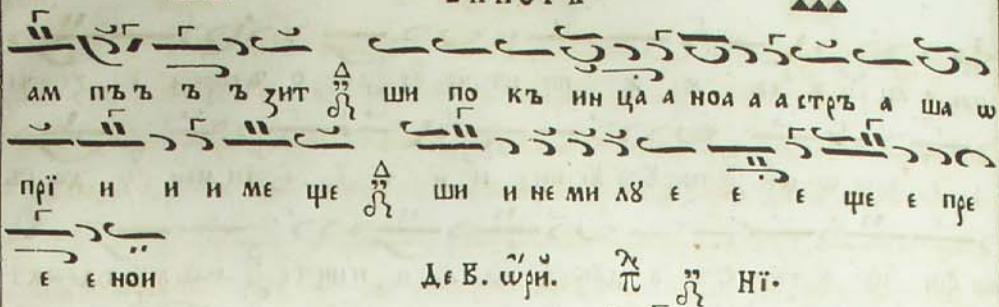 ам пъ ъ ъ ъ зит ши по къ ин ца а ноа а а стръ а ша ѡ
прї и и и ме ще ши и не ми лꙋ е е е ще е пре
е е нои Де в. ѡ҆ри́. Нї·